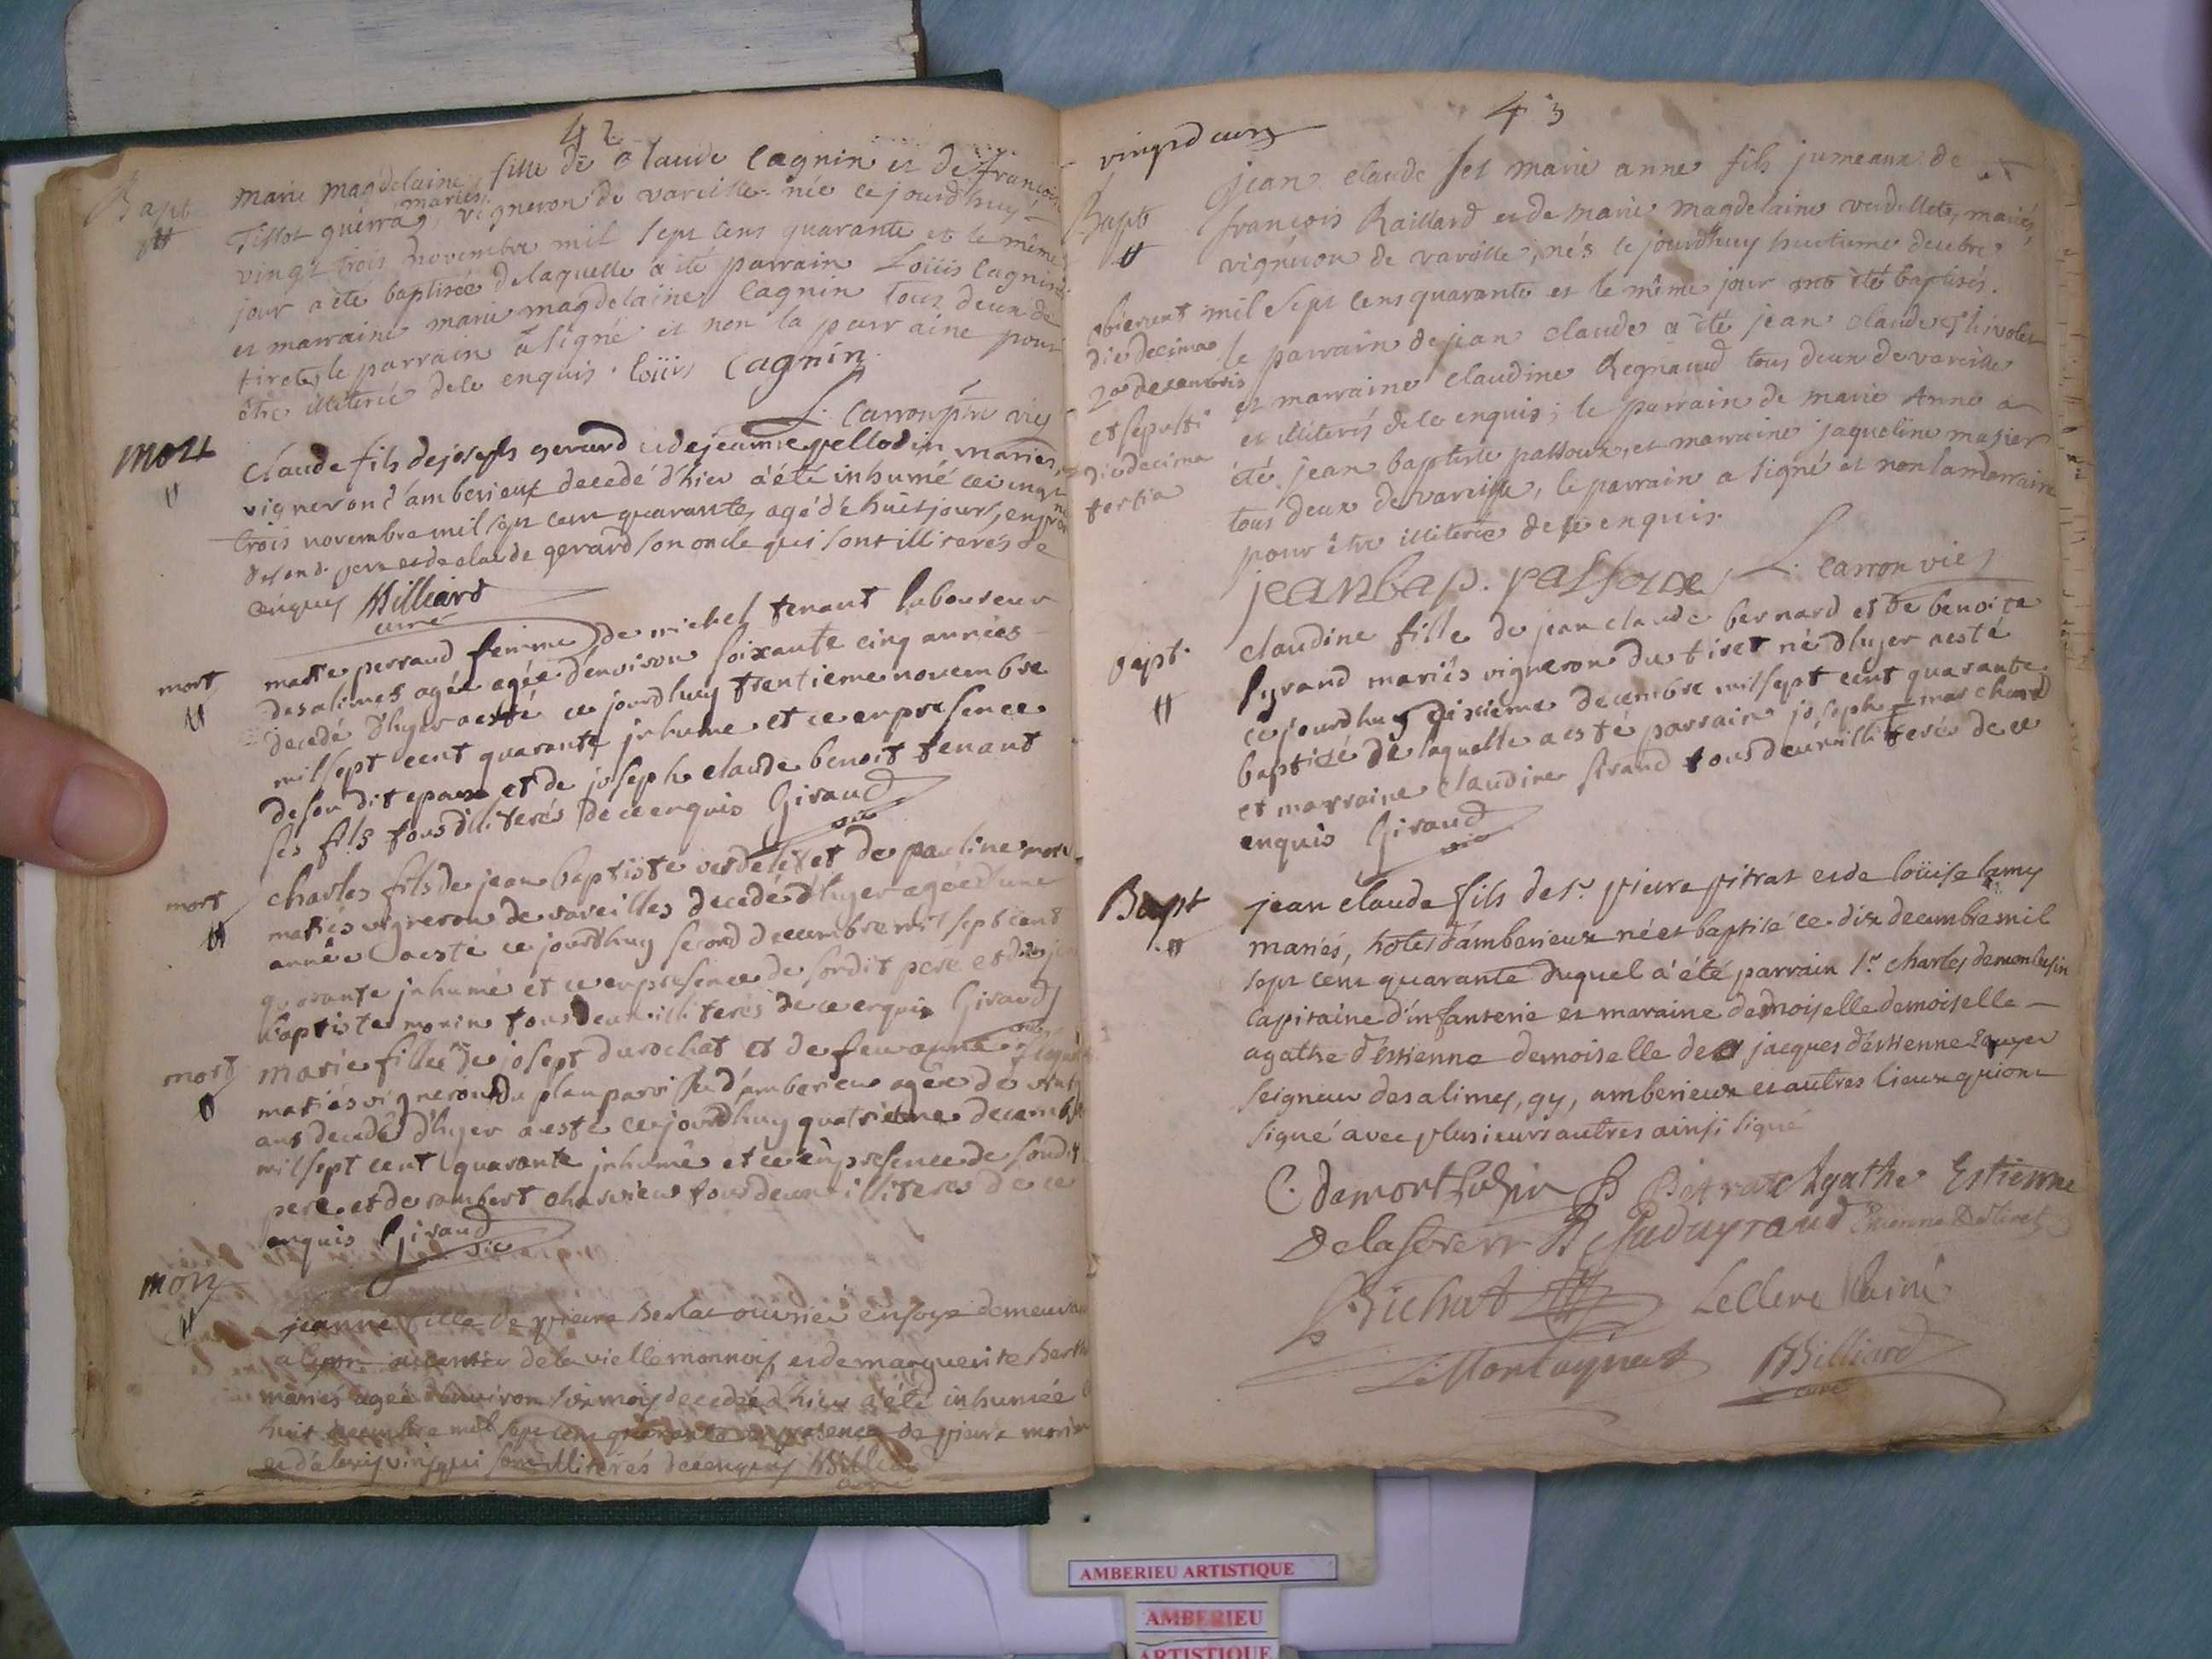 42
Bapt
marie magdelaine fille de Claude Cagnin et de françoise
Tissot guerra mariés vigneron de vareille née ce jourdhuy
vingt trois novembre mil sept cens quarante et le même
jour a eté baptisée delaquelle a été parrain Loüis Cagnin
et marraine marie magdelaine Cagnin tous deux de
tiret, le parrain a signé et non la parraine pour
être illiterée de ce enquis. loüis Cagnin
L. Carron vic
mort
Claude fils de joseph gerard et de jeanne pellodin mariés,
vigneron d'amberieux decedé d'hier a été inhumé ce vingt
trois novembre mil sept cent quarante, agé de huit jours, en
de sond. pere et de claude gerard son oncle qui sont illiterés de
ce enquis Milliard
curé
mort
perraud femme de michel tenant laboureur
des alimes agée agée d'environ soixante cinq années
decedé d'hyer aesté ce jourdhuy trentieme novembre
mil sept cent quarante inhume et ce en presence
de son dit epoux et de joseph claude benoit tenant
ses fils tous illiterés de ce enquis Giraud
vic
mort
charles fils de jean baptiste verdelet et de pauline
mariés vigneron de vareilles decedé d'hyer agée d'une
année aesté ce jourdhuy second decembre mil sept cent
quarante inhumé et ce en presence de sondit pere et de
baptiste morin tous deux illiterés de ce enquis Giraud
vic
mort
marie fille de josept durochat et de feu anne
mariés vigneron du plan paroisse d'amberieu agée de vint
ans decedé d'hyer aesté ce jourdhuy quatrieme decembre
mil sept cent quarante inhumé et ce en presence de sondit
pere et de rambert charvieu tous deux illiteres de ce
enquis Giraud
vic
mort
jeanne fille de pierre Berlat ouvrier en soye demeurant
a lyon de la vielle monnoy, et de marguerite
mariés agée d'environ six mois decedée d'hier a été inhumée
huit decembre mil sept cens quarante en presence de pierre
et d'alexis qui sont illiterés de ce enquis Milliard
curé
43
vingt deux
Bapt
jean claude et marie anne fils jumeaux de
françois Raillard et de marie magdelaine verdellet, mariés,
vigneron de vareille, nés le jourdhuy huitieme decebre
mil sept cens quarante et le même jour ont été baptisés.
obierunt
die decima
2a decembris
et sepulti
die decima
tertia
le parrain de jean claude a été jean claude Chivolet
et marraine claudine Regnaud tous deux de vareille
et illiterés de ce enquis; le parrain de marie Anne a
été jean baptiste passoux, et marraine jaqueline masier
tous deux de vareille, le parrain a signé et non la marraine
pour être illiterée de ce enquis.
jean bap. passoux L. Carron vic
Bapt.
claudine fille de jean claude bernard et de benoite
syrand mariés vigneron du tiret né d'hyer aesté
ce jourdhuy dixieme decembre mil sept cent quarante
baptizé de laquelle aesté parrain joseph marchand
et marraine claudine sirand tous deux illiteré de ce
enquis Giraud
vic
Bapt
jean claude fils de sr. pierre pitrat et de loüise lamy
mariés, hotes d'amberieux né et baptisé ce dix decembre mil
sept cent quarante duquel a été parrain sr. charles demontlusin
capitaine d'infanterie et maraine demoiselle demoiselle
agathe d'éstienne demoiselle de jacques d'éstienne Ecuyer
seigneur des alimes, gy, amberieux et autres lieux qui ont
signé avec plusieurs autres ainsi signé
C. demontluzin P Pitrat Agathe Estienne
Bichat Leclerc l'ainé
Montagnat Milliard
curé
AMBERIEU ARTISTIQUE
AMBERIEU
ARTISTIQUE